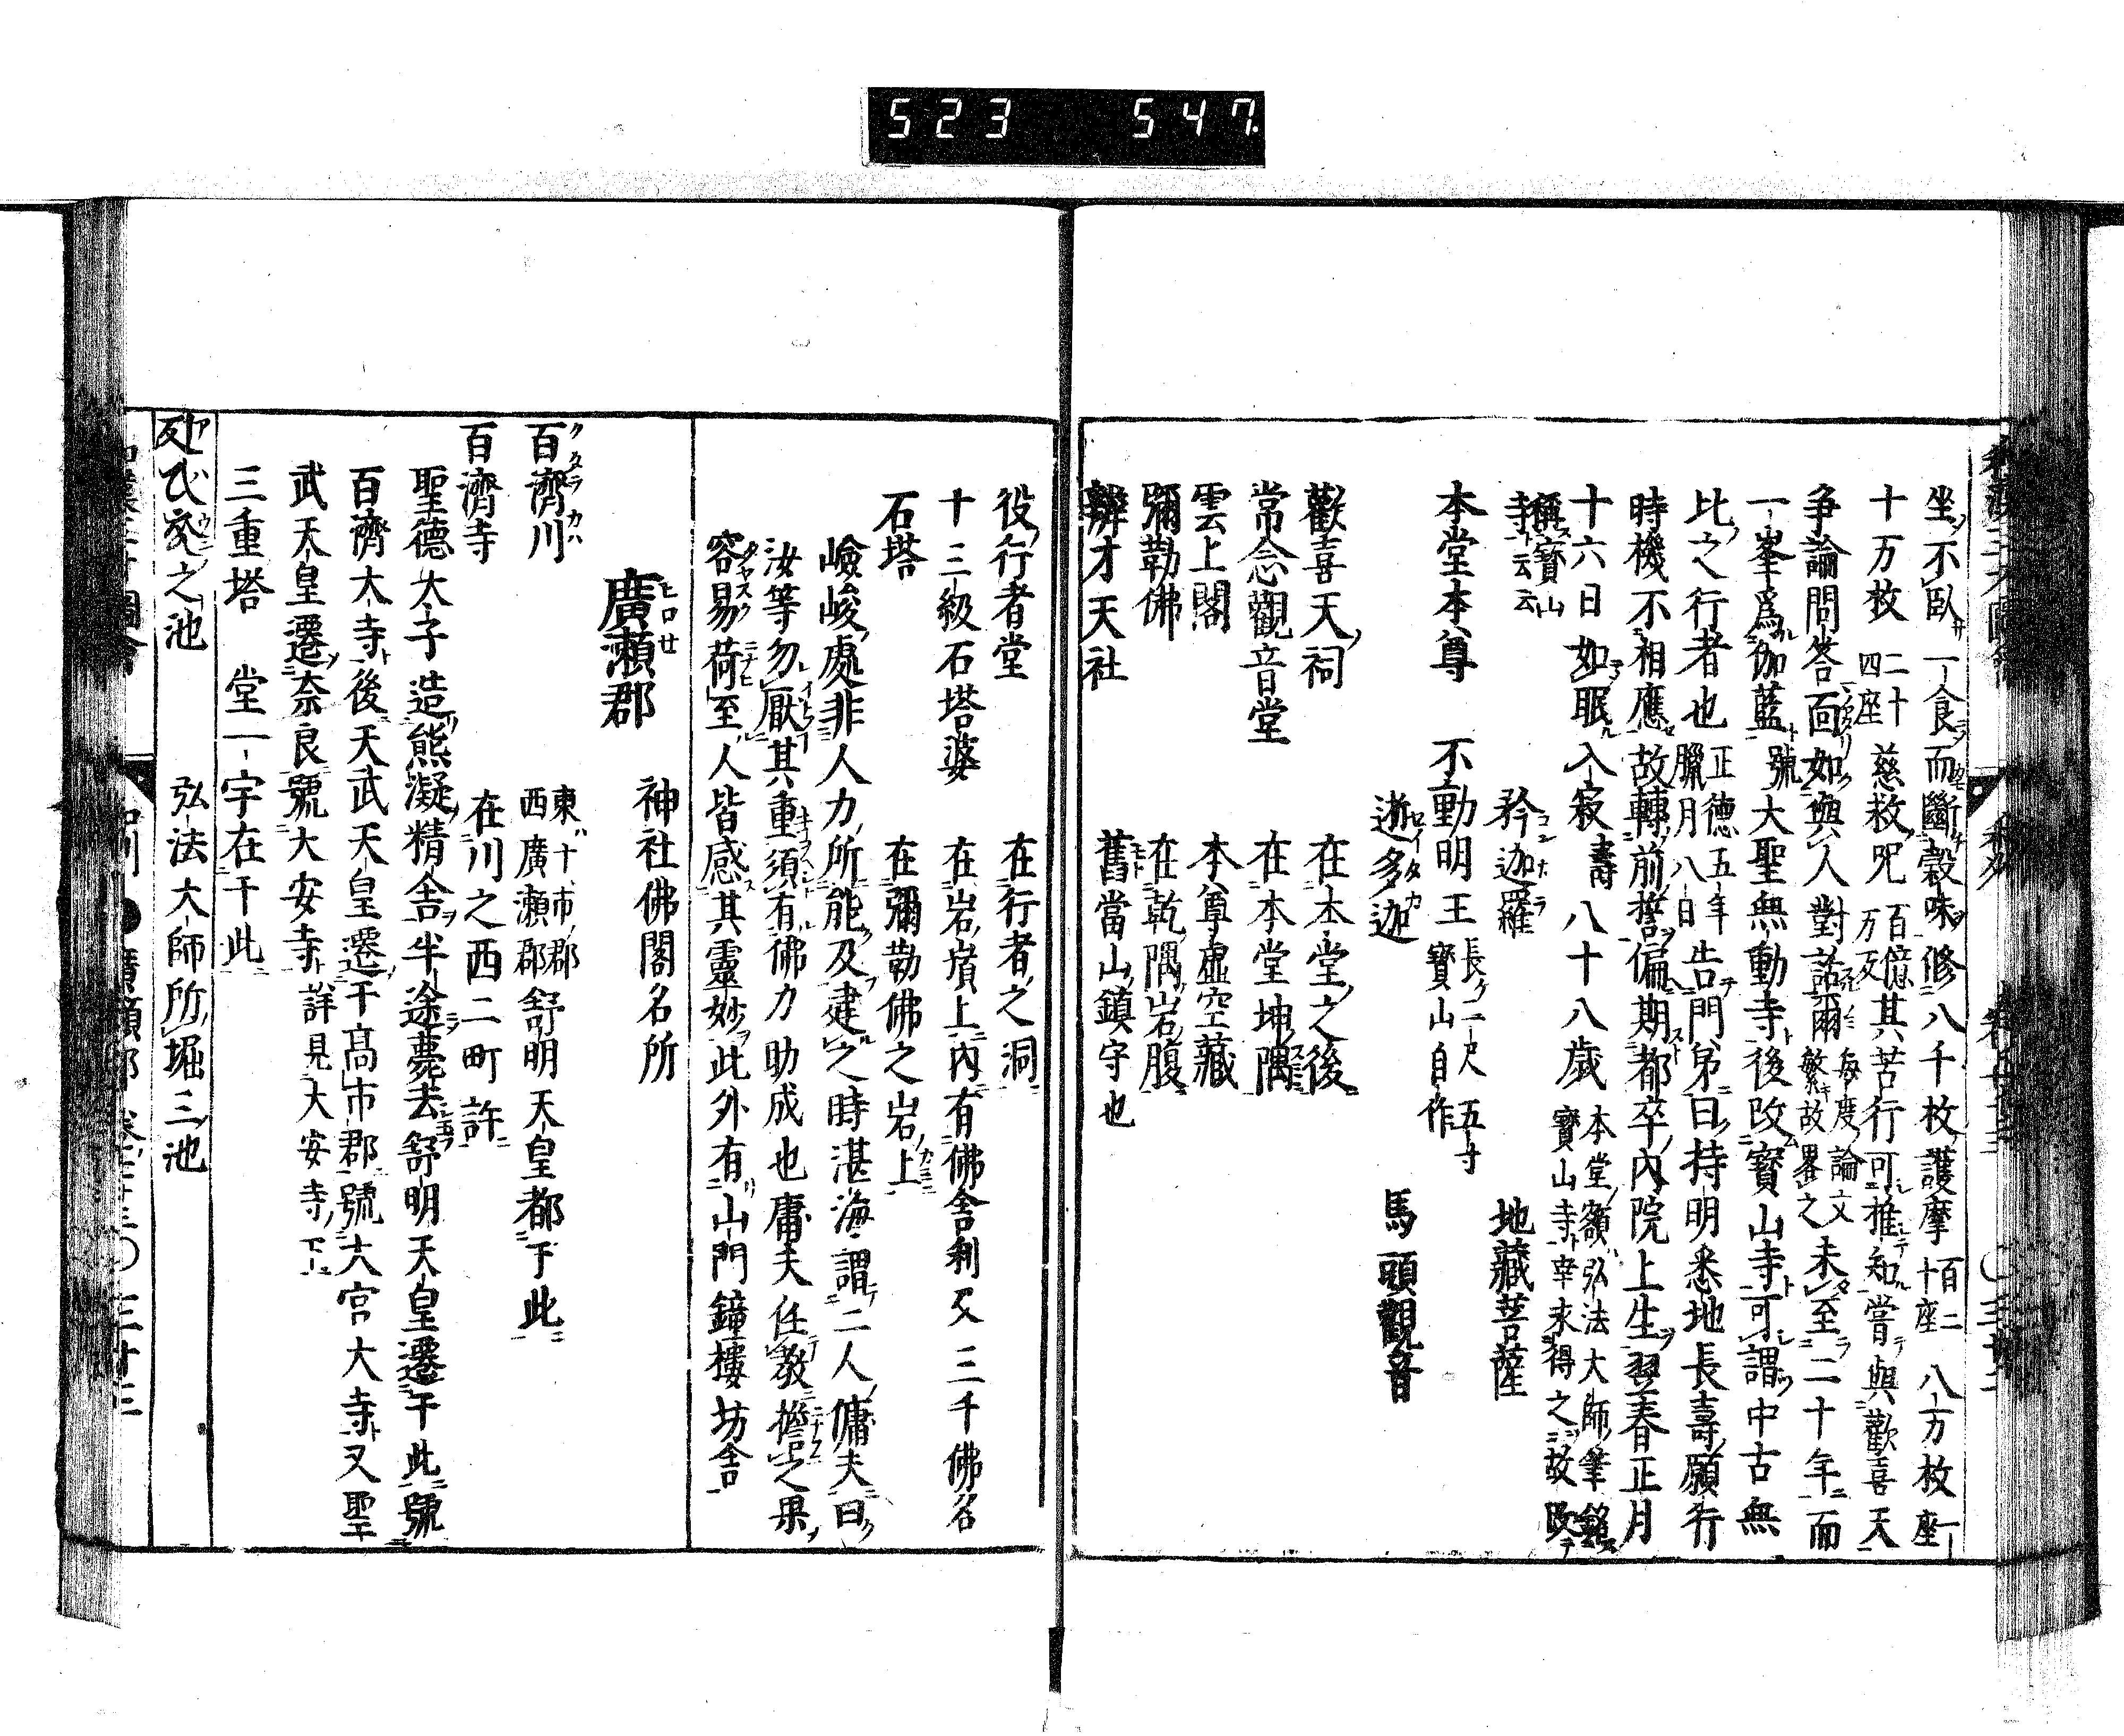 523 547.
坐不臥一食而斷穀味修八千枚護摩百二十座八万枚一座
十万枚二十四座慈救咒百億万反其苦行可推知嘗與歡喜天
争論問答面如與人對話爾毎度論文繁故畧之未至二十年而
一峯爲伽藍號大聖無動寺後改寳山寺可謂中古無
比之行者也正德五年臘月八日告門弟曰持明悉地長壽願行
時機不相應故轉前誓偏期都卒内院上生翌春正月
十六日如眠入寂壽八十八歲本堂額弘法大師筆銘
寳山寺幸求得之故
稱寳山寺云云
本堂本尊 不動明王長二尺五寸寳山自作
矜迦羅 地藏菩薩
逝多迦 馬頭觀音
歡喜天祠 在本堂之後
常念觀音堂 在本堂坤隅
雲上閣 本尊虚空藏
彌勒佛 在乾隅岩腹
辨才天社 舊當山鎮守也
役行者堂 在行者之洞
十三級石塔婆 在岩嶺上内有佛舎利又三千佛名
石塔 在彌勒佛之岩上
嶮峻處非人力所能及建之時湛海謂二人傭夫曰
汝等勿厭其重須有佛力助成也庸夫任教擔之果
容易荷至人皆感其靈妙此外有山門鐘樓坊舎
廣瀬郡 神社佛閣名所
ヒロセ
百濟川 東十市郡西廣瀬郡舒明天皇都于此
クタラカハ
百濟寺 在川之西二町許
聖德太子造熊凝精舎半途薨去舒明天皇遷于此號
百濟大寺後天武天皇遷于髙市郡號大宮大寺又聖
武天皇遷奈良號大安寺詳見大安寺下
三重塔 堂一宇在于此
之池 弘法大師所堀三池
廣瀬郡 三十三